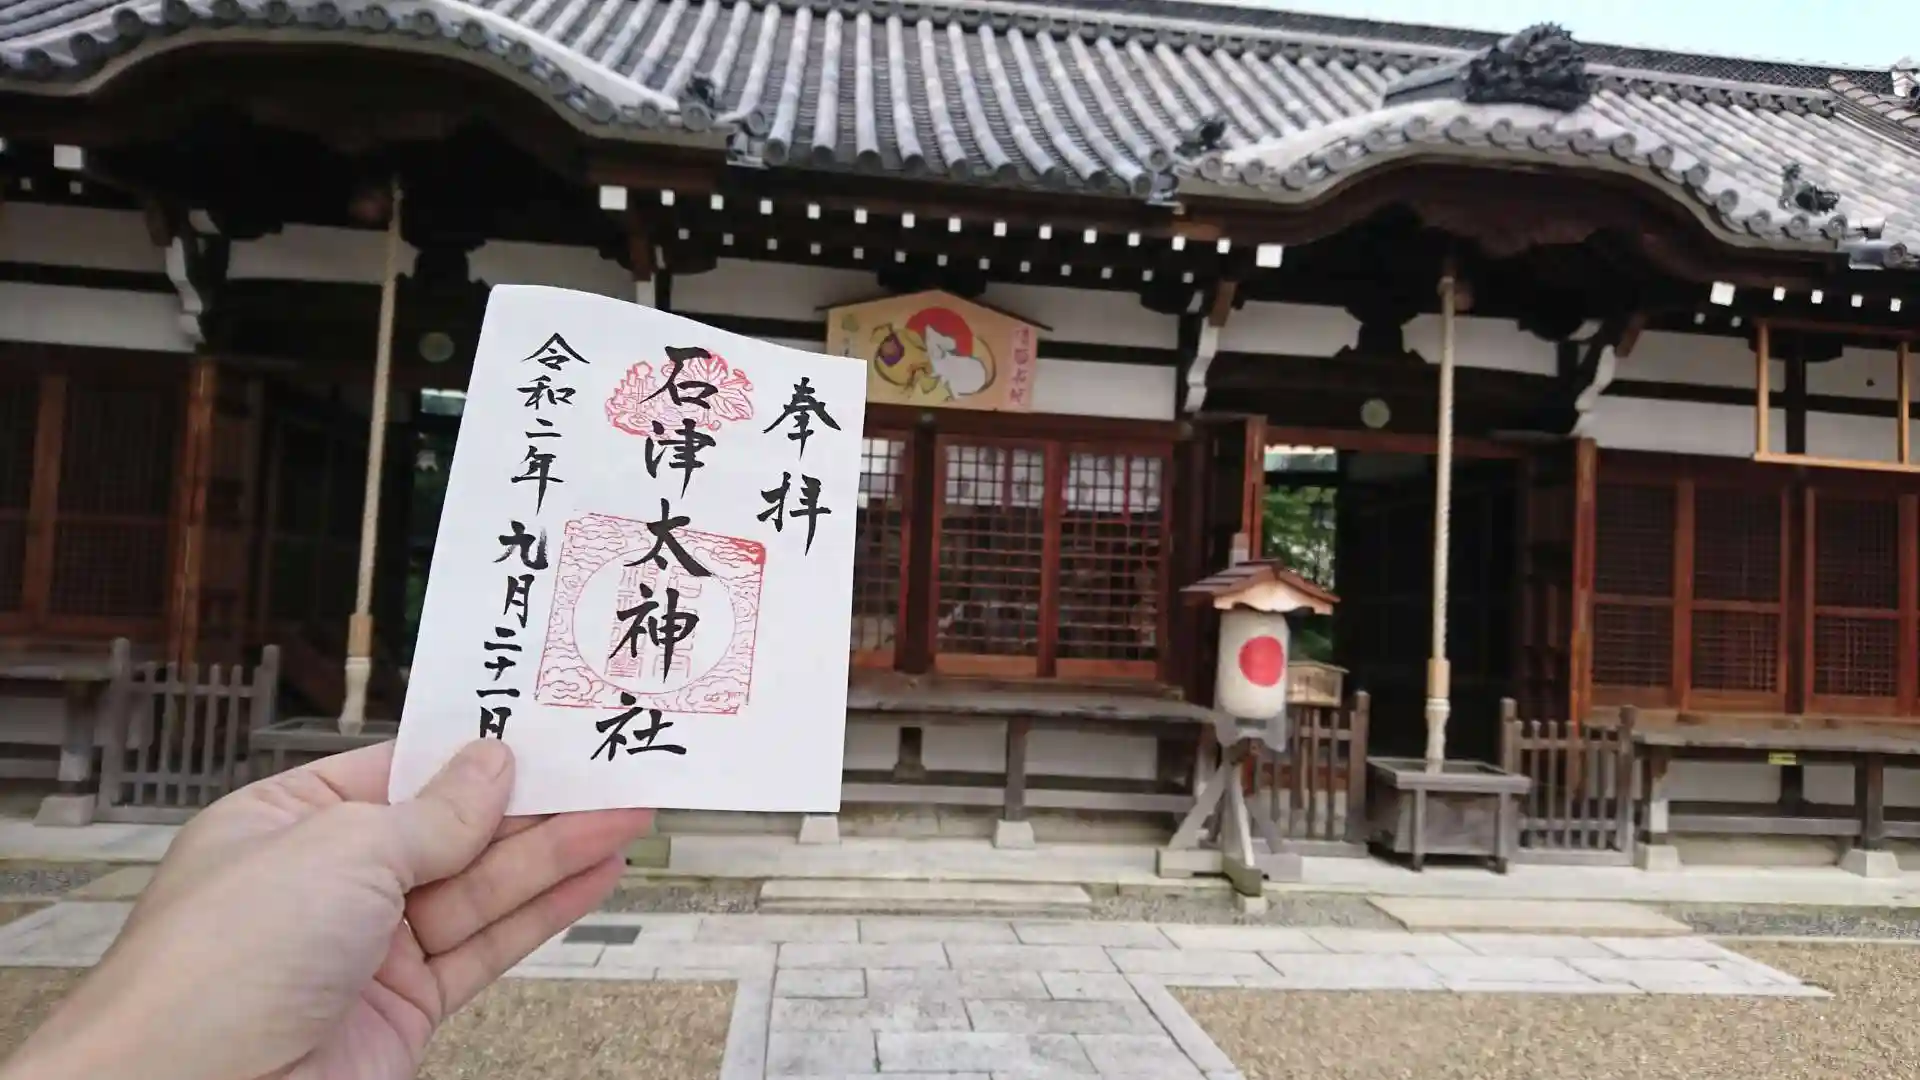 奉拝
石津太神社
令和二年九月二十一日